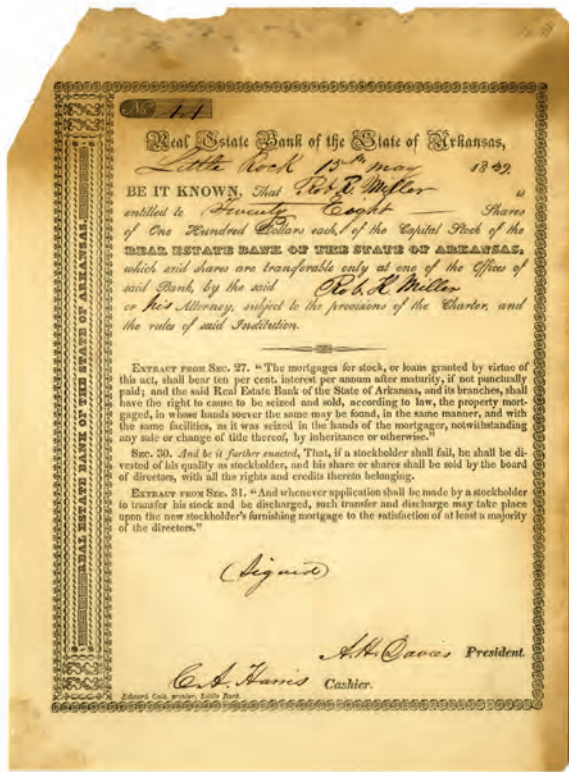 No 44
Real Estate Bank of the State of Arkansas,
Little Rock 15th May 1839.
BE IT KNOWN, That Rob. R. Miller is
entitled to Twenty Eight Shares
of One Hundred Dollars each, of the Capital Stock of the
REAL ESTATE BANK OF THE STATE OF ARKANSAS,
which said shares are transferable only at one of the Offices of
said Bank, by the said Rob. R Miller
or his Attorney, subject to the provisions of the Charter, and
the rules of said Institution.
EXTRACT FROM SEC. 27. "The mortgages for stock, or loans granted by virtue of
this act, shall bear ten per cent. interest per annum after maturity, if not punctually
paid; and the said Real Estate Bank of the State of Arkansas, and its branches, shall
have the right to cause to be seized and sold, according to law, the property mort-
gaged, in whose hands soever the same may be found, in the same manner, and with
the same facilities, as it was seized in the hands of the mortgager, notwithstanding
any sale or change of title thereof, by inheritance or otherwise."
SEC. 30. And be it further enacted, That, if a stockholder shall fail, he shall be di-
vested of his quality as stockholder, and his share or shares shall be sold by the board
of directors, with all the rights and credits thereto belonging.
EXTRACT FROM SEC. 31. "And whenever application shall be made by a stockholder
to transfer his stock and be discharged, such transfer and discharge may take place
upon the new stockholder's furnishing mortgage to the satisfaction of at least a majority
of the directors."
(Signed)
A. H. Davies President.
C. A. Harris Cashier.
Edward Cole, printer, Little Rock.
REAL ESTATE BANK OF THE STATE OF ARKANSAS.